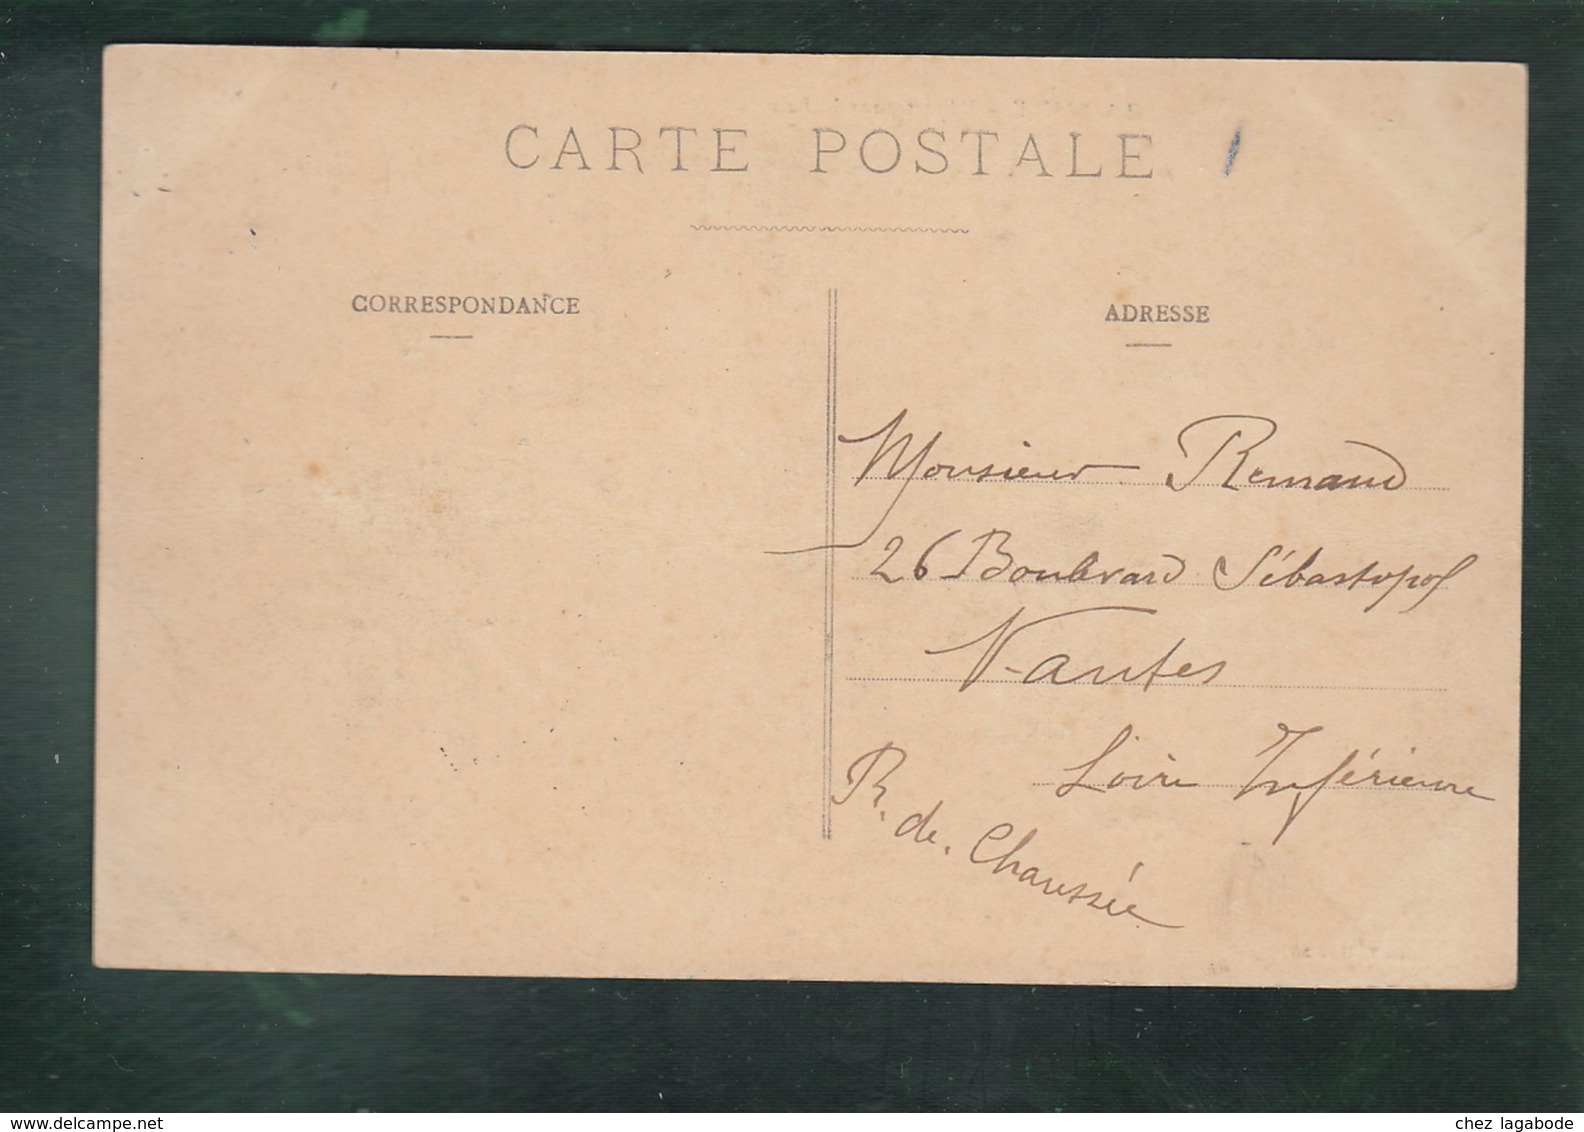 CARTE POSTALE
CORRESPONDANCE
ADRESSE
Monsieur Remaud
26 Boulevard Sébastopol
Nantes
Loire Inférieure
R. de. Chaussée
www.delcampe.net
chez lagabode